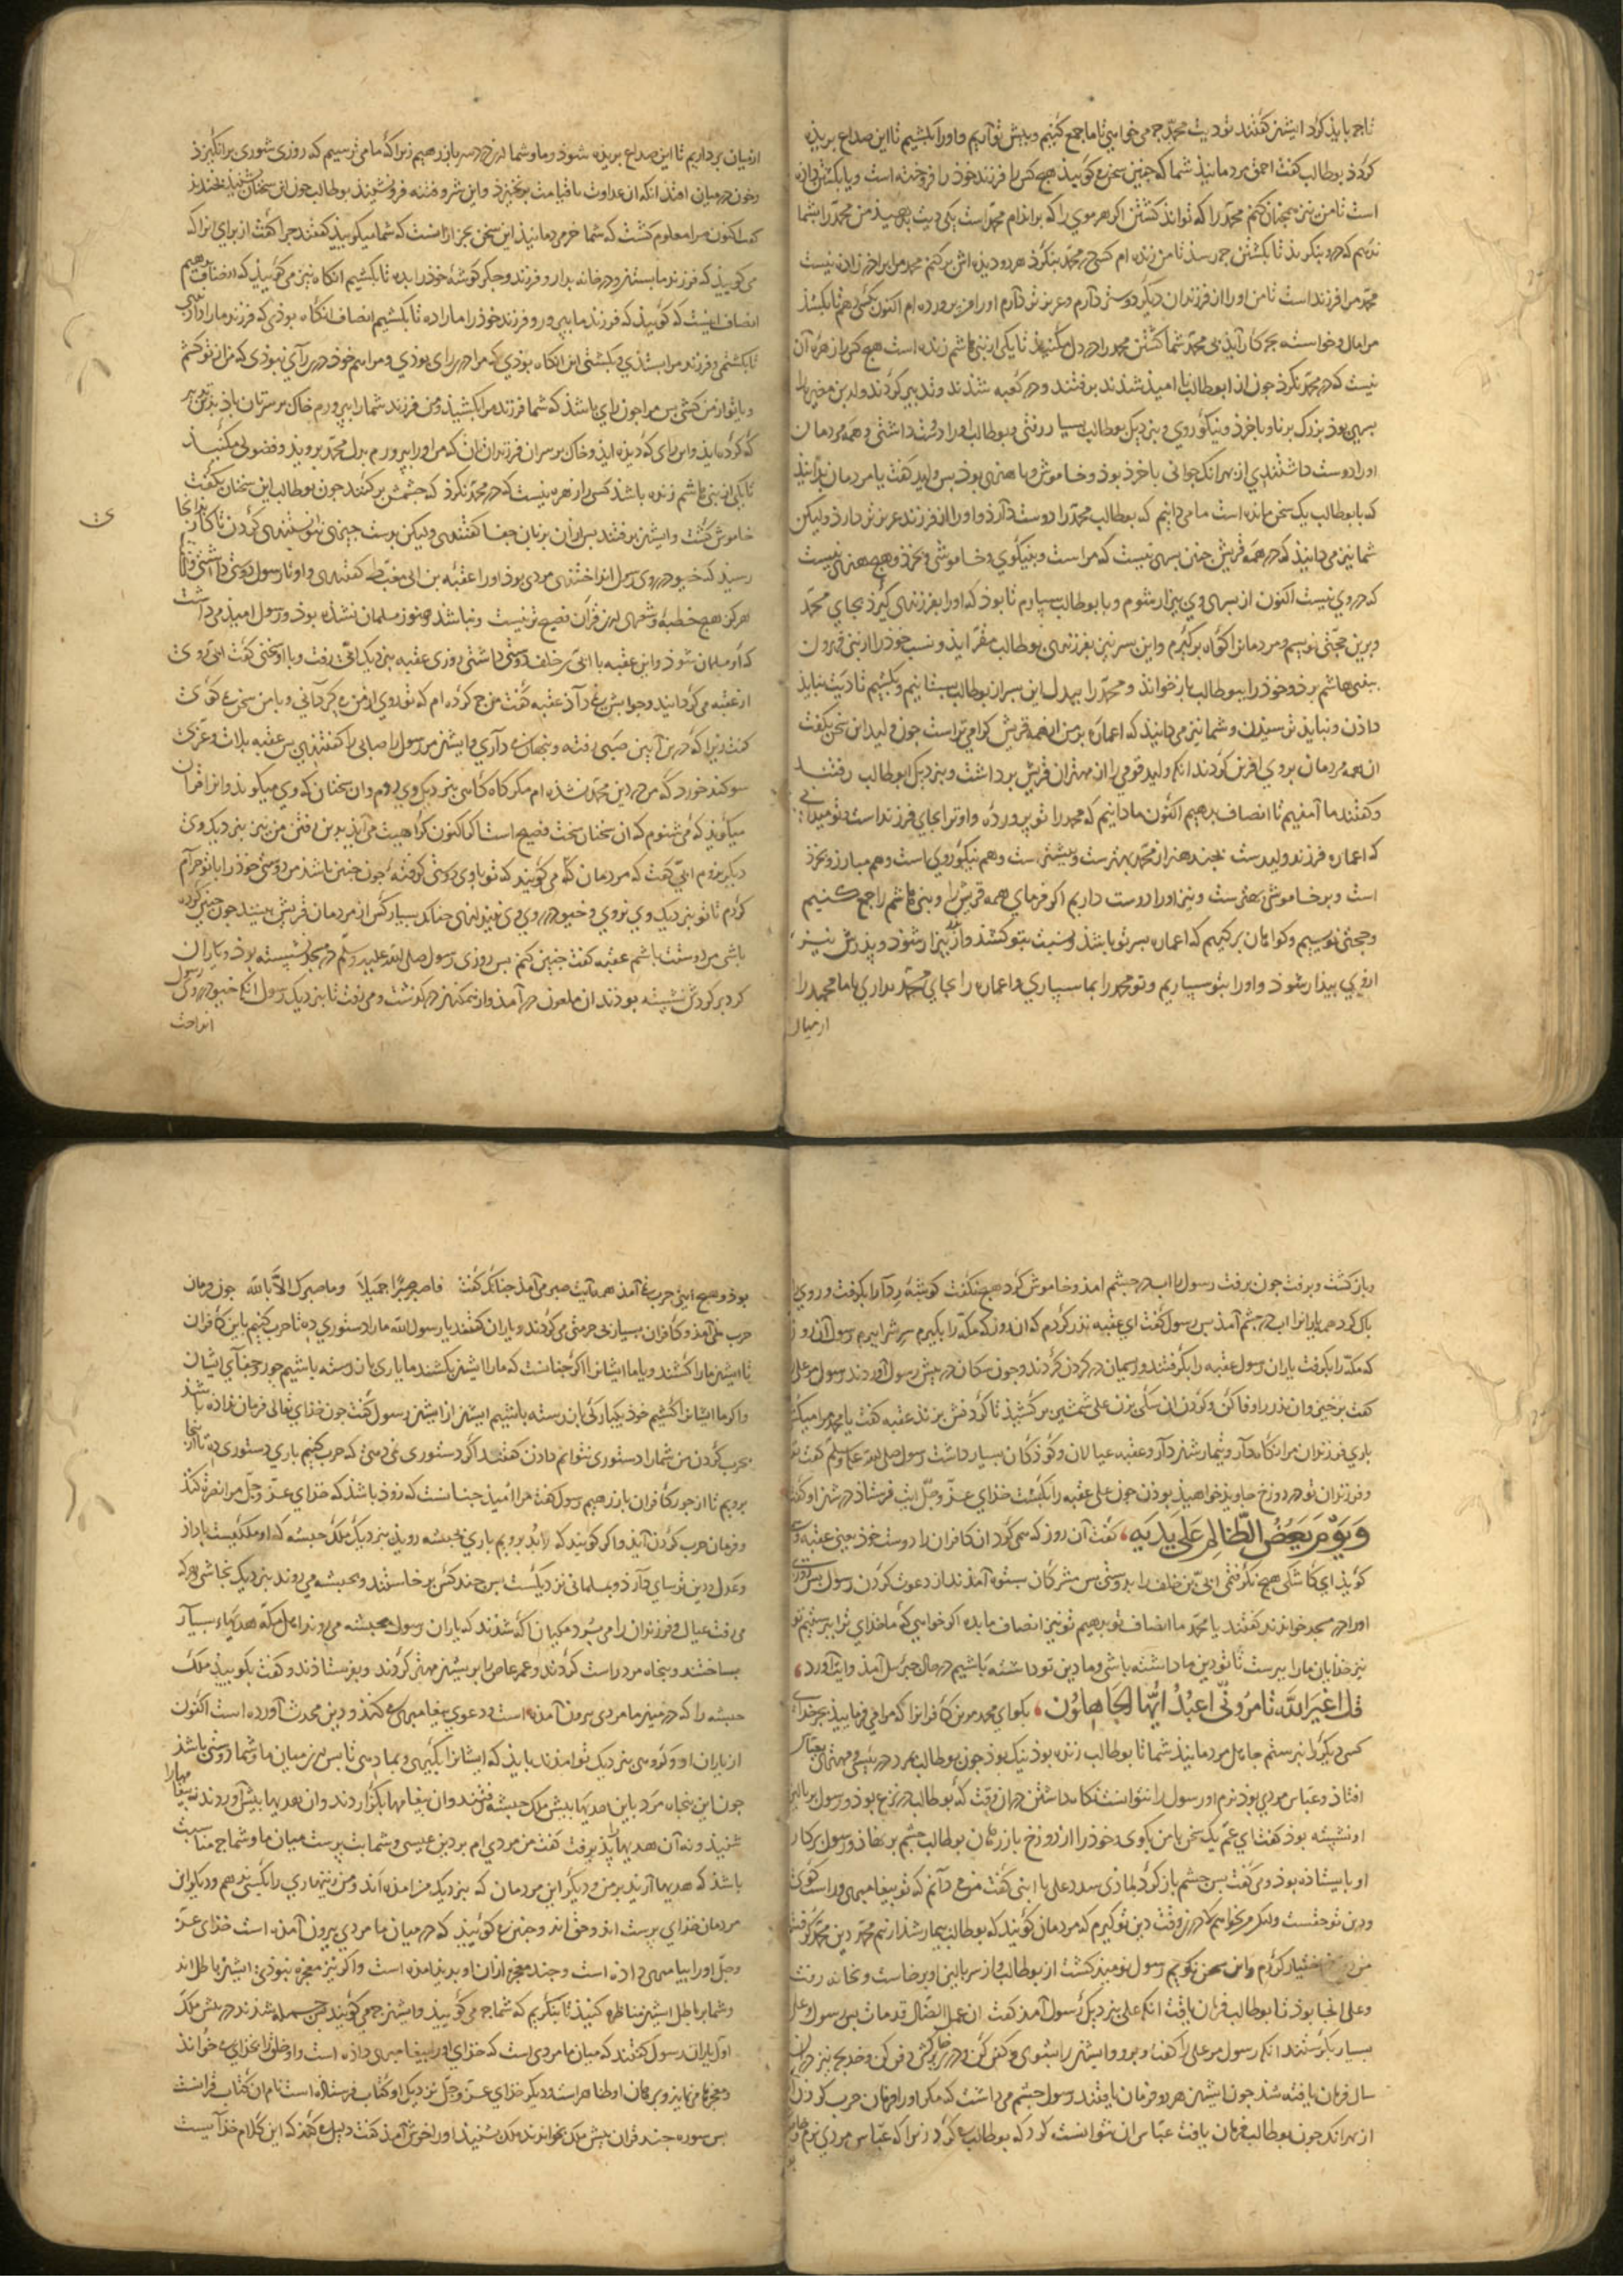 تا چه باید کرد ایشن گفتند تو دیت محمد چه می خواهی تا ما جمع کنیم و پیش تو آریم و او را بکشیم تا این صداع بریذه
کردذ بوطالب گفت احمق مردمانیذ شما که چنین سخن می کوییذ هیچ کس را فرزند خوذ را فروخته است و یا بکشتن داذه
است تا من نیز همچنان کنم محمد را که تواند کشتن اگر هر موی را که بر اندام محمد است یکی دیت بدهیذ من محمد را بشما
ندهم که در وی بنکریذ تا بکشتن چه رسذ تا من زنده ام کسی در محمد بنکرذ هر دو دیذه اش برکنم محمد مرا برادرزاذه نیست
محمد مرا فرزند است تا من او را از فرزندان دیکر دوستر دارم و عزیزتر دارم او را من پرورده ام اکنون کی دهم تا بکشند
مرا مال و خواسته بچه کار آیذ بی محمد شما کشتن محمد را در دل مکنیذ تا یکی از بنی هاشم زنده است هیچ کس را زهره آن
نیست که در محمد نکرذ چون از ابوطالب نا امیذ شذند برفتند و در کعبه شذند و تدبیر کردند ولید بن مغیره را
پسری بوذ بزرک برنا و با خرذ و نیکوروی و بنزدیک بوطالب بسیار رفتی و بوطالب او را دوست داشتی و همه مردمان
او را دوست داشتندی از بهر انک جوانی با خرذ بوذ و خاموش و با هنر بوذ پس ولید گفت یا مردمان بدانیذ
که با بوطالب یک سخن مانده است ما می دانیم که بوطالب محمد را دوست دارذ و او را از فرزند عزیزتر دارذ ولیکن
شما نیز می دانیذ که در همه قریش چنین پسری نیست که مراست و بنیکوی و خاموشی و بخرذ و هیچ هنری نیست
که در وی نیست اکنون از پسری وی بیزار شوم و با بوطالب سپارم تا بوذ که او را بفرزندی کیرذ بجای محمد
و برین حجتی نویسم و مردمانرا کواه برکیرم و این پسر نیز بفرزندی بوطالب مقر ایذ و نسب خوذ را از بنی مخزوم
ببنی هاشم برذ و خوذ را ببوطالب باز خواند و محمد را ببدل این پسر از بوطالب بستانیم و بکشیم تا دیت نبایذ
داذن و نبایذ ترسیذن و شما نیز می دانیذ که اعماره بر من از همه قریش کرامی تر است چون ولید این سخن بگفت
ان همه مردمان بر وی افرین کردند انکه ولید قومی را از مهتران قریش برداشت و بنزدیک ابوطالب رفتند
و گفتند ما آمذیم تا انصاف بدهیم اکنون ما دانیم که محمد را تو پرورده و او ترا بجای فرزند است و تو میدانی
که اعماره فرزند ولید است بچند هنر از محمد بهتر ست و بیشتر ست و هم نیکوروی است و هم مبارز و بخرذ
است و بر خاموشی بهتر ست و نیز او را دوست داریم اگر فرمای همه قریش را و بنی هاشم را جمع کنیم
و حجتی نویسیم و کواهان برکیریم که اعماره پسر تو باشذ و نسبت بتو کنند و از پذر بیزار شوذ و پذرش نیز
از وی بیزار شوذ و او را بتو سپاریم و تو محمد را بما سپاری و اعماره را بجای محمد بداری تا ما محمد را
از میان
از میان برداریم تا این صداع بریذه شوذ و ما و شما ازین درد سر باز رهیم زیرا که ما می ترسیم که روزی شوری برانگیزد
و خون در میان افتذ انکه ان عداوت تا قیامت برنخیزذ و این شر و فتنه فرو ننشیند بوطالب چون این سخنان بشنید بخندید
گفت اکنون مرا معلوم گشت که شما خر مردمانیذ این سخن بجز ازانست که شما میکوییذ گفتند چرا گفت از برای انرا که
می کوییذ که فرزند ما بستان و در خانه بدار و فرزند و جکر کوشه خوذ را بده تا بکشیم انکاه نیز می کوییذ که انصاف دهیم
انصاف اینست که کوییذ که فرزند ما بپرور و فرزند خوذ را ما را ده تا بکشیم انصاف انکاه بوذی که فرزند ما را داذتی
تا بکشتمی و فرزند مرا بستذی و بکشتی این انکاه بوذی که مرا در رای بوذی و مرا هم خوذ در رای نبوذی که من از تو کشم
و یا تو از من کشی پس مرا چون رای باشذ که شما فرزند مرا بکشیذ و من فرزند شما را بپرورم خاک بر سرتان باذ بدین تدبیر
که کرده ایذ و این رای که دیذه ایذ و خاک بر سر ان فرزندتان که من او را بپرورم بدل محمد بروید و فضولی مکنیذ
تا یکی از بنی هاشم زنده باشذ کس را زهره نیست که در محمد نکرذ که چشمش برکنند چون بوطالب این سخنان بگفت
خاموش گشت و ایشن برفتند پس ازان بزبان جفا گفتندی ولیکن بدست چیزی نتوانستندی کردن تا کار بدانجا
رسیذ که خیو در روی رسول انداختندی مردی بوذ او را عقبه بن ابی معیط گفتندی و او با رسول دوستی داشتی و گفتی
هرکز هیچ خطبه و شعری ازین قرآن فصیح تر نیست و نباشذ و هنوز مسلمان نشذه بوذ و رسول امیذ می داشت
که او مسلمان شوذ و این عقبه با ابی بن خلف دوستی داشتی روزی عقبه بنزدیک ابی رفت و با او سخنی گفت ابی روی
از عقبه می کردانید و جوابش نمی داذ عقبه گفت من چه کرده ام که تو روی از من می کردانی و با من سخن نمی کوئی
گفت زیرا که در دین آیین صبی رفته و پنهان می داری و ایشن مر رسول را صبائی را گفتندی پس عقبه بلات و عزی
سوکند خورد که من در دین محمد نشذه ام مکر گاه گاهی بنزدیک وی روم و ان سخنان که وی میکوید و انرا قران
میگوید که می شنوم که ان سخنان سخت فصیح است اکنون کراهیت می آیذ بدین رفتن من نیز بنزدیک وی
دیکر نروم ابی گفت که مردمان مکه می گویند که تو با وی دوستی گرفته چون چنین باشذ من دوستی خوذ را با تو حرام
کردم تا تو بنزدیک وی نروی و خیو در روی وی نیندازی چنانک بسیار کس از مردمان قریش ببینند چون چنین کرده
باشی من دوستت باشم عقبه گفت چنین کنم پس روزی رسول صلی الله علیه و سلم در مسجد نشسته بود و یاران
کرد بر کردش نشسته بودند ان ملعون در آمذ و از نمکین در گذشت و می رفت تا بنزدیک رسول انکه خیو در روی رسول
انداخت
و باز گشت و برفت چون برفت رسول را اب در چشم امذ و خاموش کرد هیچ نگفت کوشه ردا را بکرفت و روی را
پاک کرد همه یارانرا اب در چشم آمذ پس رسول گفت ای عقبه نذر کردم که ان روز که مکه را بکیرم سرت را ببرم رسول آن روز
که مکه را بکرفت یاران رسول عقبه را بکرفتند و ریسمان در کردن کردند و چون سکان در پیش رسول آوردند رسول مر علی را
گفت برخیز و ان نذر را وفا کن و گردن ان سک بزن علی شمشیر بر کشیذ تا گردنش بزند عقبه گفت یا محمد مرا میکشی
باری فرزندان مرا نکاه دار و تیمار ایشن دار و عقبه عیالان و کوذکان بسیار داشت رسول صلی الله علیه و سلم گفت تو
و فرزندان تو در دوزخ جاوید خواهیذ بوذن چون علی عقبه را بکشت خذای عز و جل ایت فرستاذ در شان او گفت
وَيَوْمَ يَعَضُّ الظَّالِمُ عَلَى يَدَيْهِ گفت آن روز که می کردان کافران را دوست خوذ یعنی عقبه وی
کویذ ای کاشکی هیچ نکرفتمی ابی بن خلف را بدوستی پس مشرکان بستوه آمذند از دعوت کردن رسول پس روزی
او را در مسجد خواندند گفتند یا محمد ما انصاف تو بدهیم تو نیز انصاف ما بده اکر خواهی که ما خذای ترا بپرستیم تو
نیز خذایان ما را بپرست تا تو دین ما داشته باشی و ما دین تو داشته باشیم در حال جبرئیل آمذ و ایت آورد
قُلْ أَفَغَيْرَ اللَّهِ تَأْمُرُونِّي أَعْبُدُ أَيُّهَا الْجَاهِلُونَ بکو ای محمد مر این کافرانرا که مرا می فرماییذ بجز خذای
کسی دیکر را نپرستم جاهل مردمانیذ شما تا بوطالب زنده بوذ نیک بوذ چون بوطالب بمرد در پیشی و مهتری بعباس
افتاذ و عباس مردی بوذ نرم او رسول را نتوانست نکاه داشتن در ان وقت که بوطالب در نزع بوذ و رسول بر بالین
او نشسته بوذ گفت ای عم یک سخن با من بکوی و خوذ را از دوزخ باز رهان بوطالب چشم بر نهاذ و رسول بر کنار
او بایستاذه بوذ و می گفت پس چشم باز کرد
و دین تو حقست ولکن من نخواهم که درین وقت دین تو کیرم که مردمان کویند که بوطالب بیمار شذ از بیم محمد دین محمد گرفت
من اختیار کردم و این سخن نکویم رسول نومیذ گشت از بوطالب و از سر بالین او برخاست و بخانه رفت
و علی انجا بوذ تا بوطالب فرمان یافت انکه علی بنزدیک رسول آمذ گفت ان عمک الضال قد مات پس رسول و علی
بسیار بکریستند انکه رسول مر علی را گفت برو و ایشن را بشوی و کفن کن و در خاک کش و دفن کن و خدیجه نیز در ان
سال فرمان یافته شذ چون ایشن هر دو فرمان یافتند رسول چشم می داشت که مکر او را فرمان حرب کردن
از بهر انک چون بوطالب فرمان یافت عباس ان نتوانست کرد که بوطالب می کرد زیرا که عباس مردی نرم خوی
بوذ و هیچ ایتی حرب نمی آمذ همه آیت صبر می آمذ چنانک گفت فاصبر صبرا جمیلا وما صبرک الا بالله چون فرمان
حرب نمی آمذ و کافران بسیار بی حرمتی می کردند و یاران گفتند یا رسول الله ما را دستوری ده تا حرب کنیم باین کافران
تا ایشن ما را کشند و یا ما ایشانرا اکر چنانست که ما را ایشن بکشند ما باری باز رسته باشیم از جور و جفای ایشان
و اکر ما ایشانرا کشیم خوذ بیکبارکی باز رسته باشیم ایشن از ایشن رسول گفت چون خذای تعالی فرمان نداذه باشذ
بحرب کردن من شما را دستوری نتوانم داذن گفتند اکر دستوری نمی دهی که حرب کنیم باری دستوری ده تا از اینجا
برویم تا از جور کافران باز رهیم رسول گفت مرا امیذ چنانست که زوذ باشذ که خذای عز و جل مرا نصرت کنذ
و فرمان حرب کردن آیذ و اکر کویند که برویم باری بحبشه رویذ بنزدیک ملک حبشه که او ملکیست با داذ
و عدل و دین ترسای دارذ و بمسلمانی نزدیکست پس چند کس برخاستند و بحبشه می روند بنزدیک نجاشی هر که
می رفت عیال و فرزندان را می ببرد مکیان آکه شذند که یاران رسول بحبشه می روند اهل مکه هدیهاء بسیار
بساختند و پنجاه مرد راست کردند و عمرو عاص را بر ایشن مهتر کردند و بفرستاذند و گفت بکوییذ ملک
حبشه را که در میان ما مردی بیرون آمذه است و دعوی پیغامبری می کنذ و دین محدث آورده است اکنون
از یاران او کروهی بنزدیک تو امذند بایذ که ایشانرا بکیری و بما دهی تا پس میان ما و شما دوستی باشذ
چون این پنجاه مرد باین هدیها پیش ملک حبشه رفتند و ان پیغامها بکزاردند و ان هدیها پیش آوردند پیغامها را
شنیذ و نه آن هدیها پذیرفت گفت من مردی ام بر دین عیسی و شما بت پرست میان ما و شما چه مناسبت
باشذ که هدیها آریذ بر من و دیکر این مردمان که بنزدیک من امذه اند و من زینهاری را بکس ندهم و دیکر این
مردمان خذای پرست اند و حق اند و چنین می کوییذ که در میان ما مردی بیرون آمذه است خذای عز
و جل او را پیامبری داذه است و چند معجزه ازان او بدیذ امذه است و اکر نیز معجزه نبوذی ایشن باطل اند
و شما بر باطل ایشن مناظره کنیذ تا بنکریم که شما چه می کوییذ و ایشن چه می کویند پس جمله شذند در پیش ملک
اول یاران رسول گفتند که میان ما مردی است که خذای او را پیغامبری داذه است و او خلق را بخذای می خواند
و معجزها می نماید و برهان او ظاهر است و دیکر خذای عز و جل نزدیک او کتاب فرستاذه است نام ان کتاب قرانست
پس سوره چند قران پیش ملک بخواندند ملک بشنیذ او را خوش آمذ گفت دلیل می کنذ که این کلام خذایست